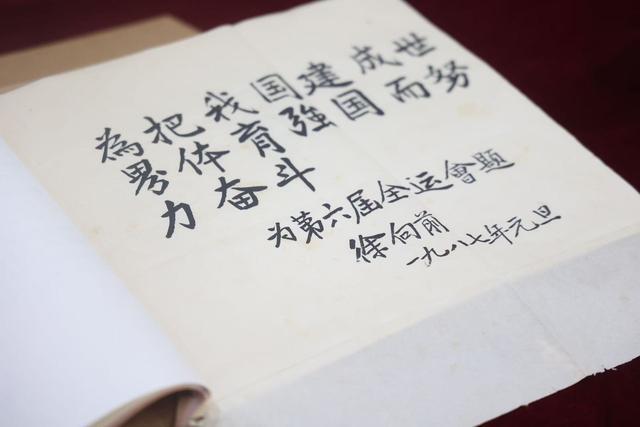 為把我国建成世
界体育強国而努
力奋斗
为第六届全运會题
徐向前
一九八七年元旦